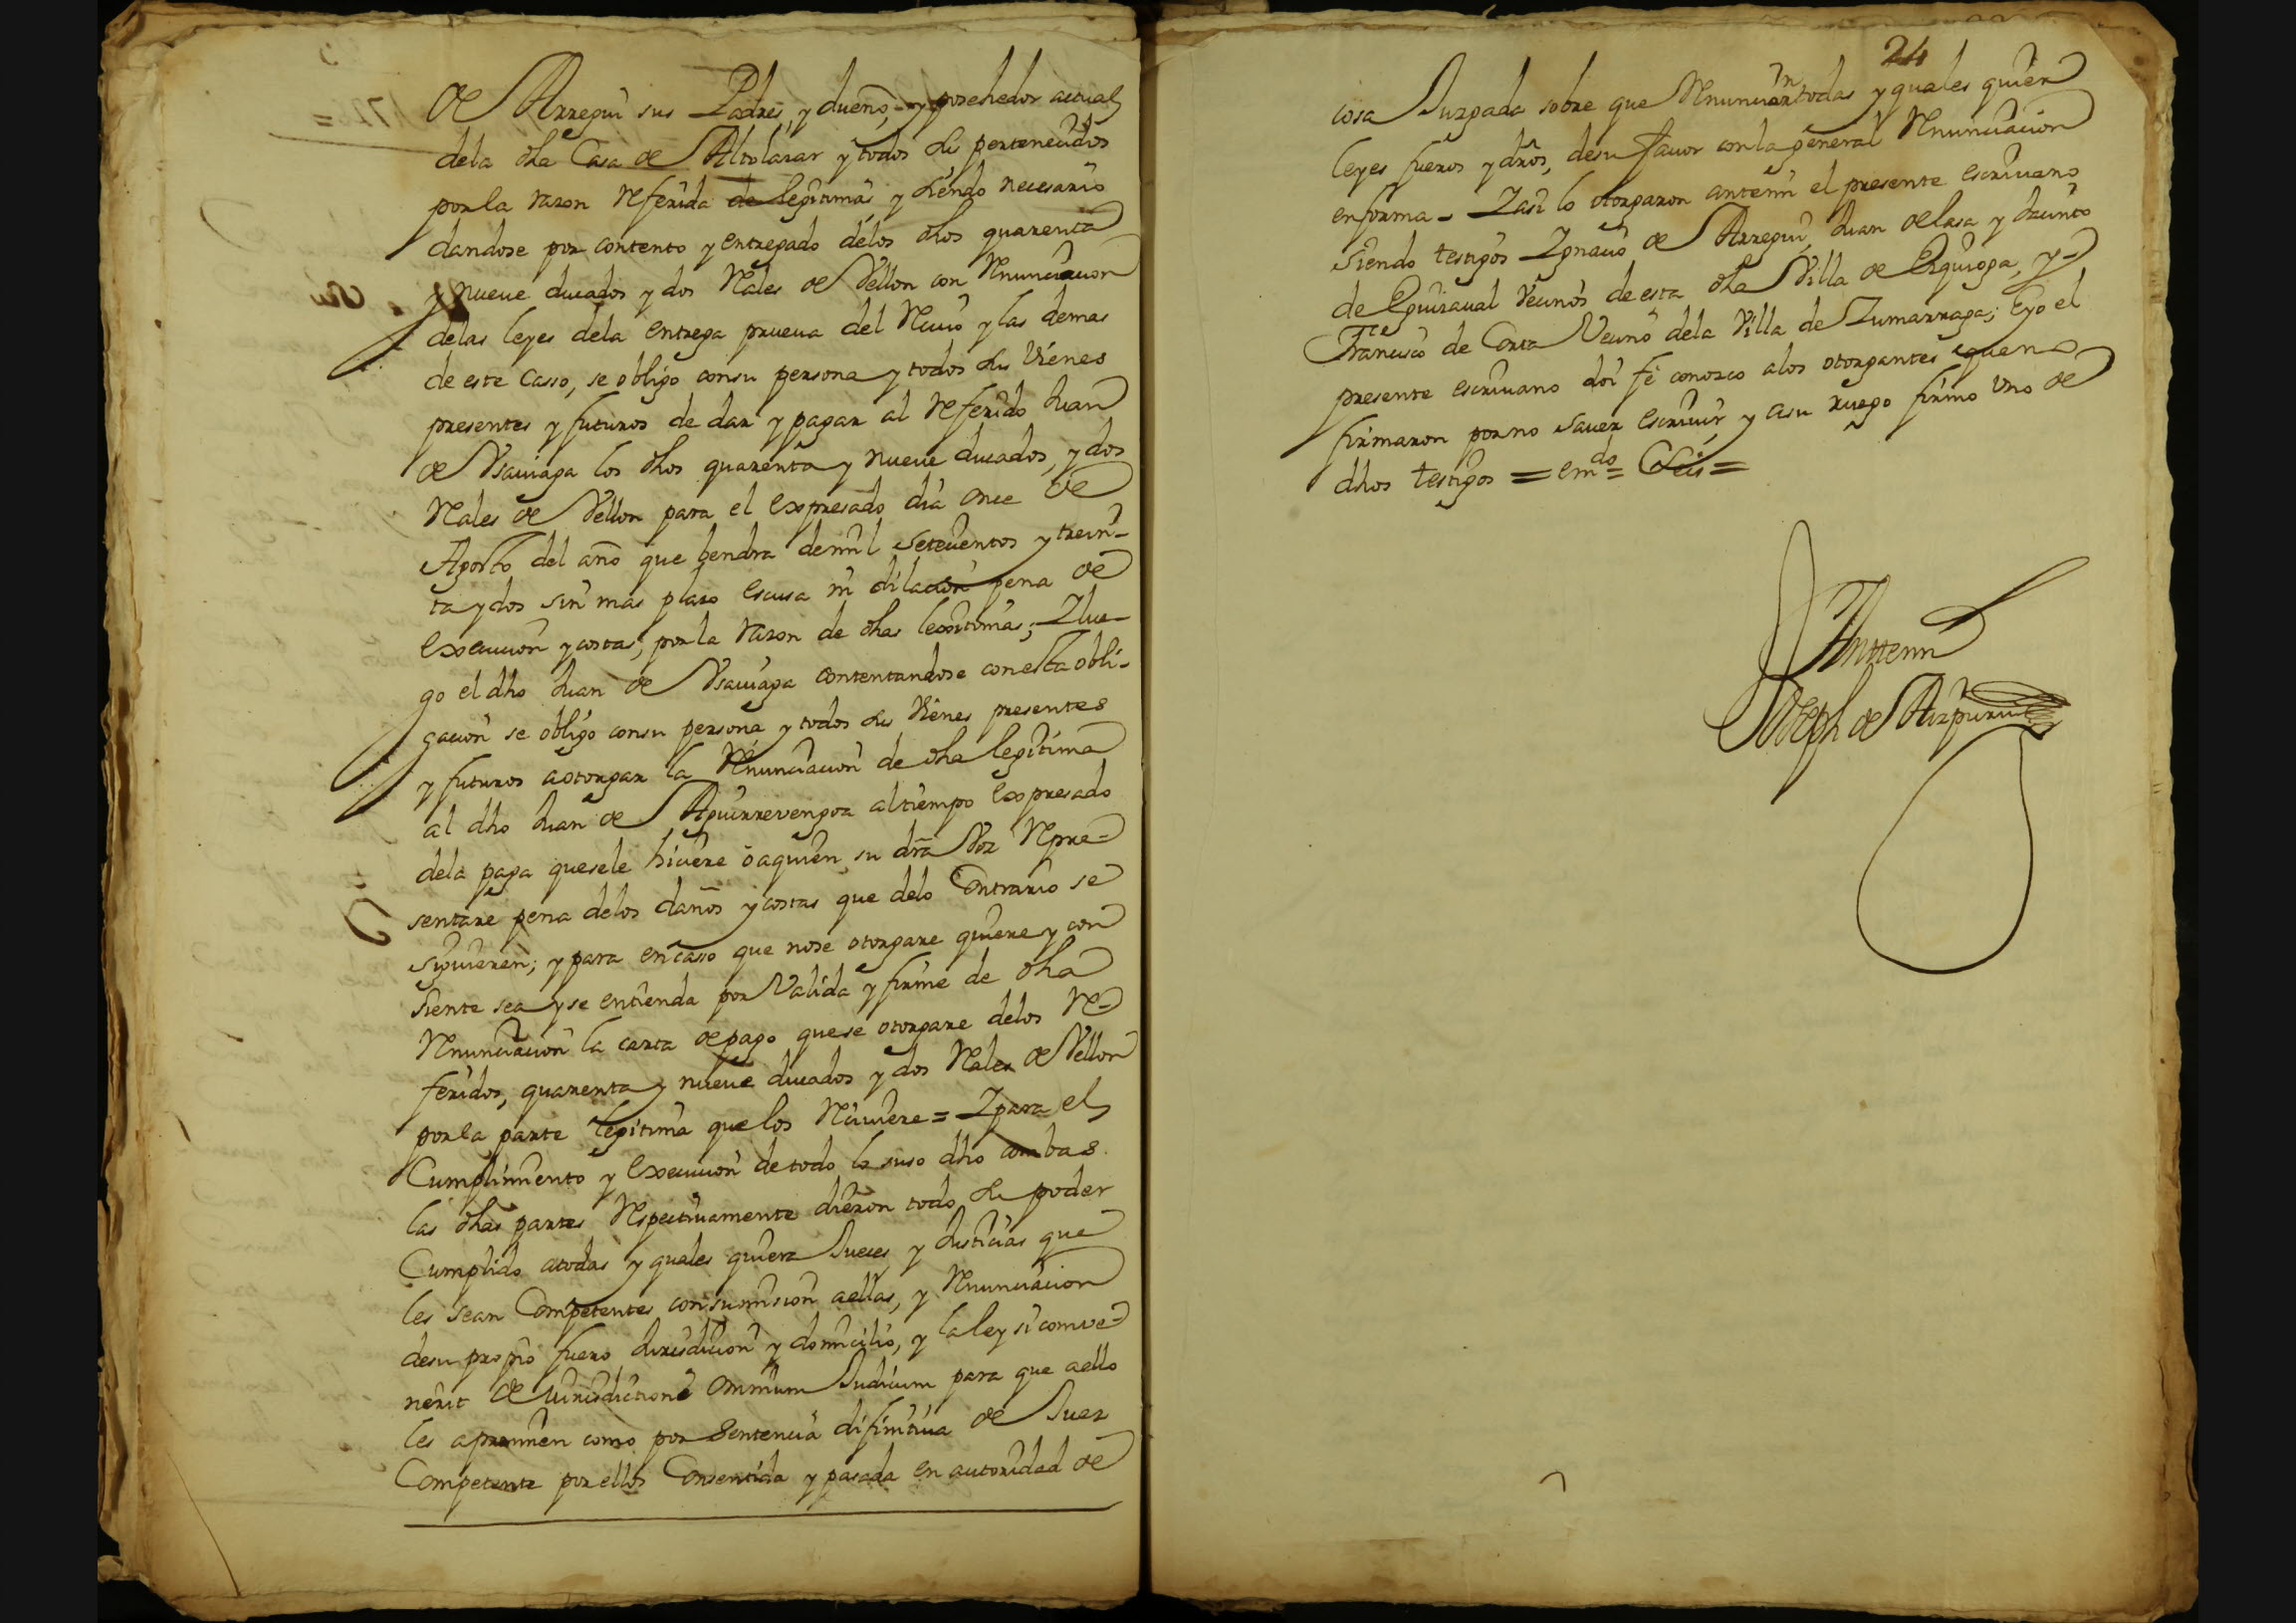 de Arregui sus Padres, y dueño, y posehedor actual
dela dha Casa de Altolazar y todos sus pertenecidos
por la razon referida de legitimas, y siendo necesario
dandose por contento y entregado delos dhos quarenta
y nueue ducados y dos Reales de Vellon con Renunciacion
delas leyes dela entrega prueua del Reciuo y las demas
de este Casso, se obligo consu persona y todos sus Vienes
presentes y futuros de dar y pagar al referido Juan
de Vsauiaga los dhos quarenta y nueue ducados, y dos
Reales de Vellon para el expresado dia once de
Agosto del año que bendra demil setecientos y trein-
ta y dos sin mas plazo escusa ni dilacion pena de
execucion y costas, por la razon de dhas lexitimas; Ylue-
go el dho Juan de Vsauiaga contentandose con esta obli-
gacion se obligo consu persona y todos sus Vienes presentes
y futuros aotorgar la Renunciacion de dha legitima
al dho Juan de Aguirrevengoa altiempo expresado
dela paga quesele hiciere ó aquien su dra Voz repre-
sentare pena delos daños y costas que delo Contrario se
siguieren; y para encasso que nose otorgare quiere y con
siente sea y se entienda por Valida y firme de dha
Renunciacion la carta de pago quese otorgare delos re-
feridos, quarenta y nueue ducados y dos Reales de Vellon
por la parte legitima que los reciuiere = Y para el
Cumplimiento y execucion de todo lo suso dho ambas
las dhas partes respectiuamente dieron todo su poder
Cumplido atodas y quales quiera Jueces y Justicias que
les sean Competentes con sumision aellas, y Renunciacion
desu propio fuero Jurisdicion y domicilio, y la ley si comve-
nerit de Jurisdictione Omnium Judicum para que aello
les apremien como por Sentencia difinitiua de Juez
Competente por ellos Consentida y pasada en autoridad de
24
cosa Juzgada sobre que Renunciaron todas y quales quier
leyes fueros y dros, desu fauor con la general Renunciacion
enforma - Yasi lo otorgaron antemi el presente escriuano
siendo testigos Ygnacio de Arregui, Juan de lasa y
de Eguizaual Vecinos de esta dha Villa de Ezquioga, y
Franᶜᵒ de Corta Vecino dela Villa de Zumarraga; Eyo el
presente escriuano doi fe conozco alos otorgantes que no
firmaron por no sauer escriuir, y asu ruego firmo Vno de
dhos testigos = emdo =
Anttemi
Joseph de Aizpuru